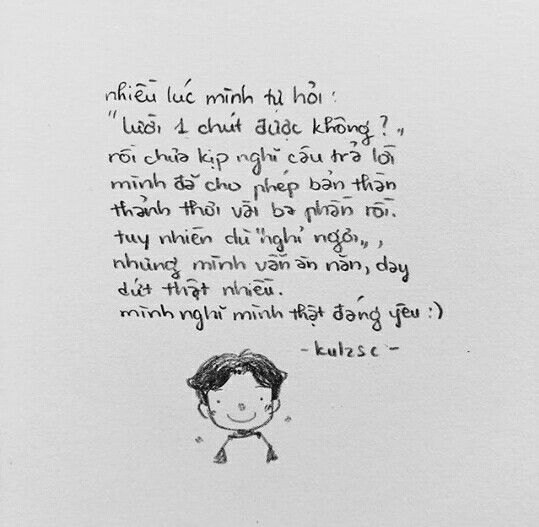 nhiều lúc mình tự hỏi :
"lười 1 chút được không ? „
rồi chưa kịp nghĩ câu trả lời
mình đã cho phép bản thân
thảnh thơi vài ba phần rồi.
tuy nhiên dù "nghỉ ngơi„ ,
nhưng mình vẫn ăn năn, day
dứt thật nhiều.
mình nghĩ mình thật đáng yêu :)
- kulzsc -